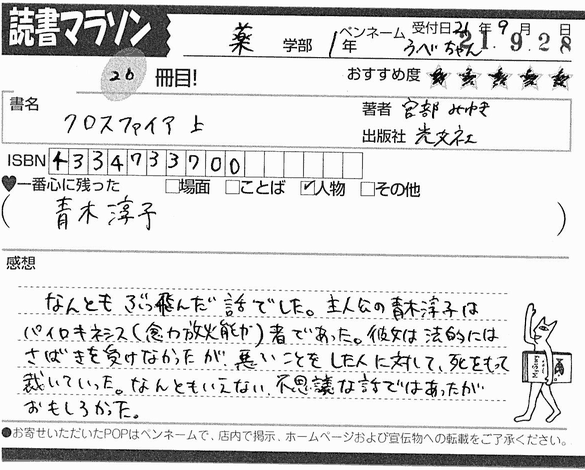 読書マラソン
薬 学部 1年
ペンネーム うべちゃん
受付日 21年9月 日
21.9.28
26 冊目!
おすすめ度 ★★★★★
書名
クロスファイア 上
著者 宮部みゆき
出版社 光文社
ISBN 4334733700
♥一番心に残った □場面 □ことば ☑人物 □その他
(青木淳子)
感想
なんともぶっ飛んだ話でした。主人公の青木淳子は
パイロキネシス(念力放火能力)者であった。彼女は法的には
さばきを受けなかったが、悪いことをした人に対して、死をもって
裁いていった。なんともいえない、不思議な話ではあったが
おもしろかった。
●お寄せいただいたPOPはペンネームで、店内で掲示、ホームページおよび宣伝物への転載をご了承ください。